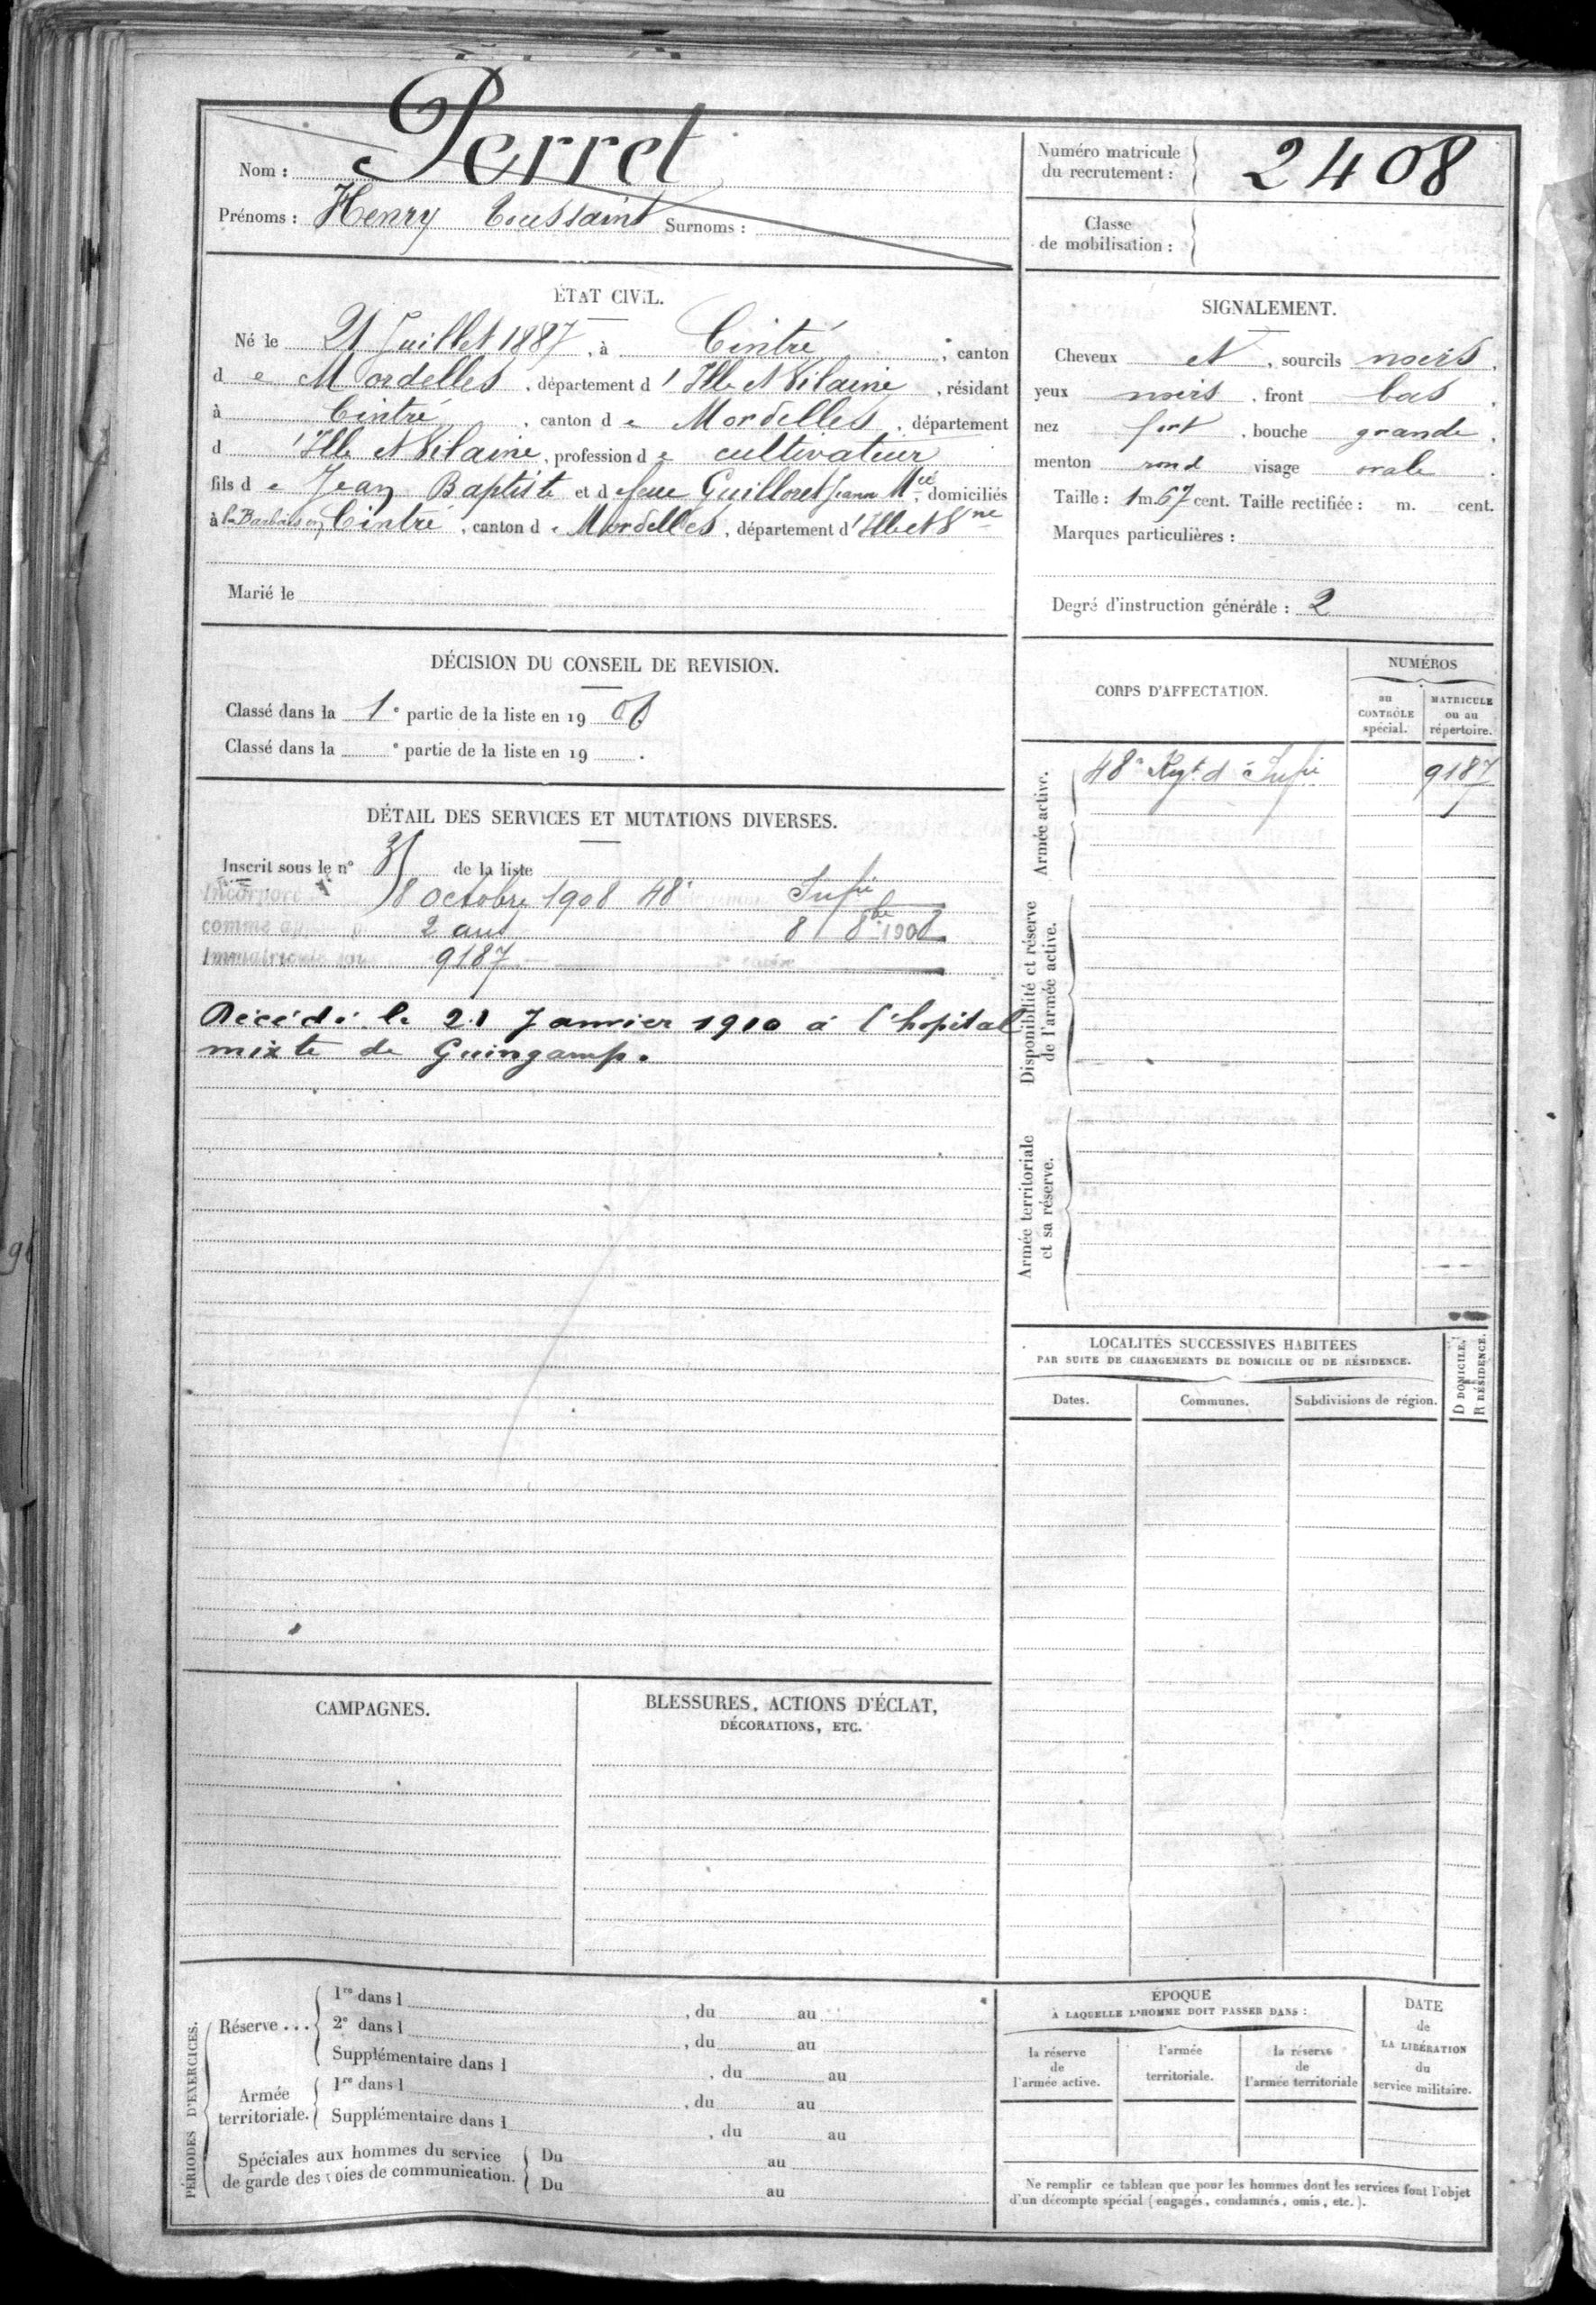 Nom : Perret
Prénoms : Henry Toussaint Surnoms :
Numéro matricule
du recrutement : 2408
Classe
de mobilisation :
ÉTAT CIVIL.
Né le 21 Juillet 1887, à Cintré, canton
de Mordelles, département d'Ille et Vilaine, résidant
à Cintré, canton de Mordelles, département
d'Ille et Vilaine, profession de cultivateur
fils de Jean Baptiste et de feue Guilloret Jeanne Mie domiciliés
à Cintré, canton de Mordelles, département d'Ille et Vne
Marié le
SIGNALEMENT.
Cheveux et, sourcils noirs,
yeux noirs, front bas,
nez fort, bouche grande,
menton rond visage ovale.
Taille : 1 m. 67 cent. Taille rectifiée : m. cent.
Marques particulières :
Degré d'instruction générale : 2
DÉCISION DU CONSEIL DE REVISION.
Classé dans la 1e partie de la liste en 19 08
Classé dans la e partie de la liste en 19 .
CORPS D'AFFECTATION.
NUMÉROS
au
CONTRÔLE
spécial.
MATRICULE
ou au
répertoire.
Armée active.
48e Regt d'Infie 9187
Disponibilité et réserve
de l'armée active.
Armée territoriale
et sa réserve.
DÉTAIL DES SERVICES ET MUTATIONS DIVERSES.
Inscrit sous le n° 31 de la liste
Incorporé 8 octobre 1908 48e Infie
comme 2 ans 8 8bre 1908
Immatriculé 9187
Décédé le 21 Janvier 1910 à l'hopital
mixte de Guingamp.
LOCALITÉS SUCCESSIVES HABITÉES
PAR SUITE DE CHANGEMENTS DE DOMICILE OU DE RÉSIDENCE.
Dates. Communes. Subdivisions de région.
D DOMICILE.
R RÉSIDENCE.
CAMPAGNES.
BLESSURES, ACTIONS D'ÉCLAT,
DÉCORATIONS, ETC.
PÉRIODES D'EXERCICES.
Réserve ...
1re dans l , du au
2e dans l , du au
Supplémentaire dans l , du au
Armée
territoriale.
1re dans l , du au
Supplémentaire dans l , du au
Spéciales aux hommes du service
de garde des voies de communication.
Du au
Du au
ÉPOQUE
À LAQUELLE L'HOMME DOIT PASSER DANS :
la réserve
de
l'armée active.
l'armée
territoriale.
la réserve
de
l'armée territoriale
DATE
de
LA LIBÉRATION
du
service militaire.
Ne remplir ce tableau que pour les hommes dont les services font l'objet
d'un décompte spécial (engagés, condamnés, omis, etc.).